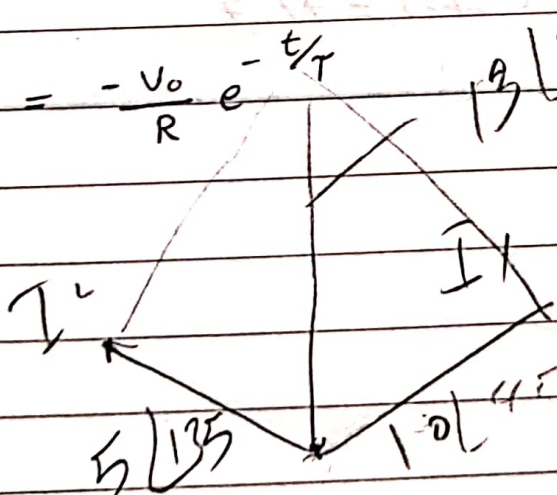 = -V₀/R e^-t/T
13∠
I²
I1
5∠135
10∠45